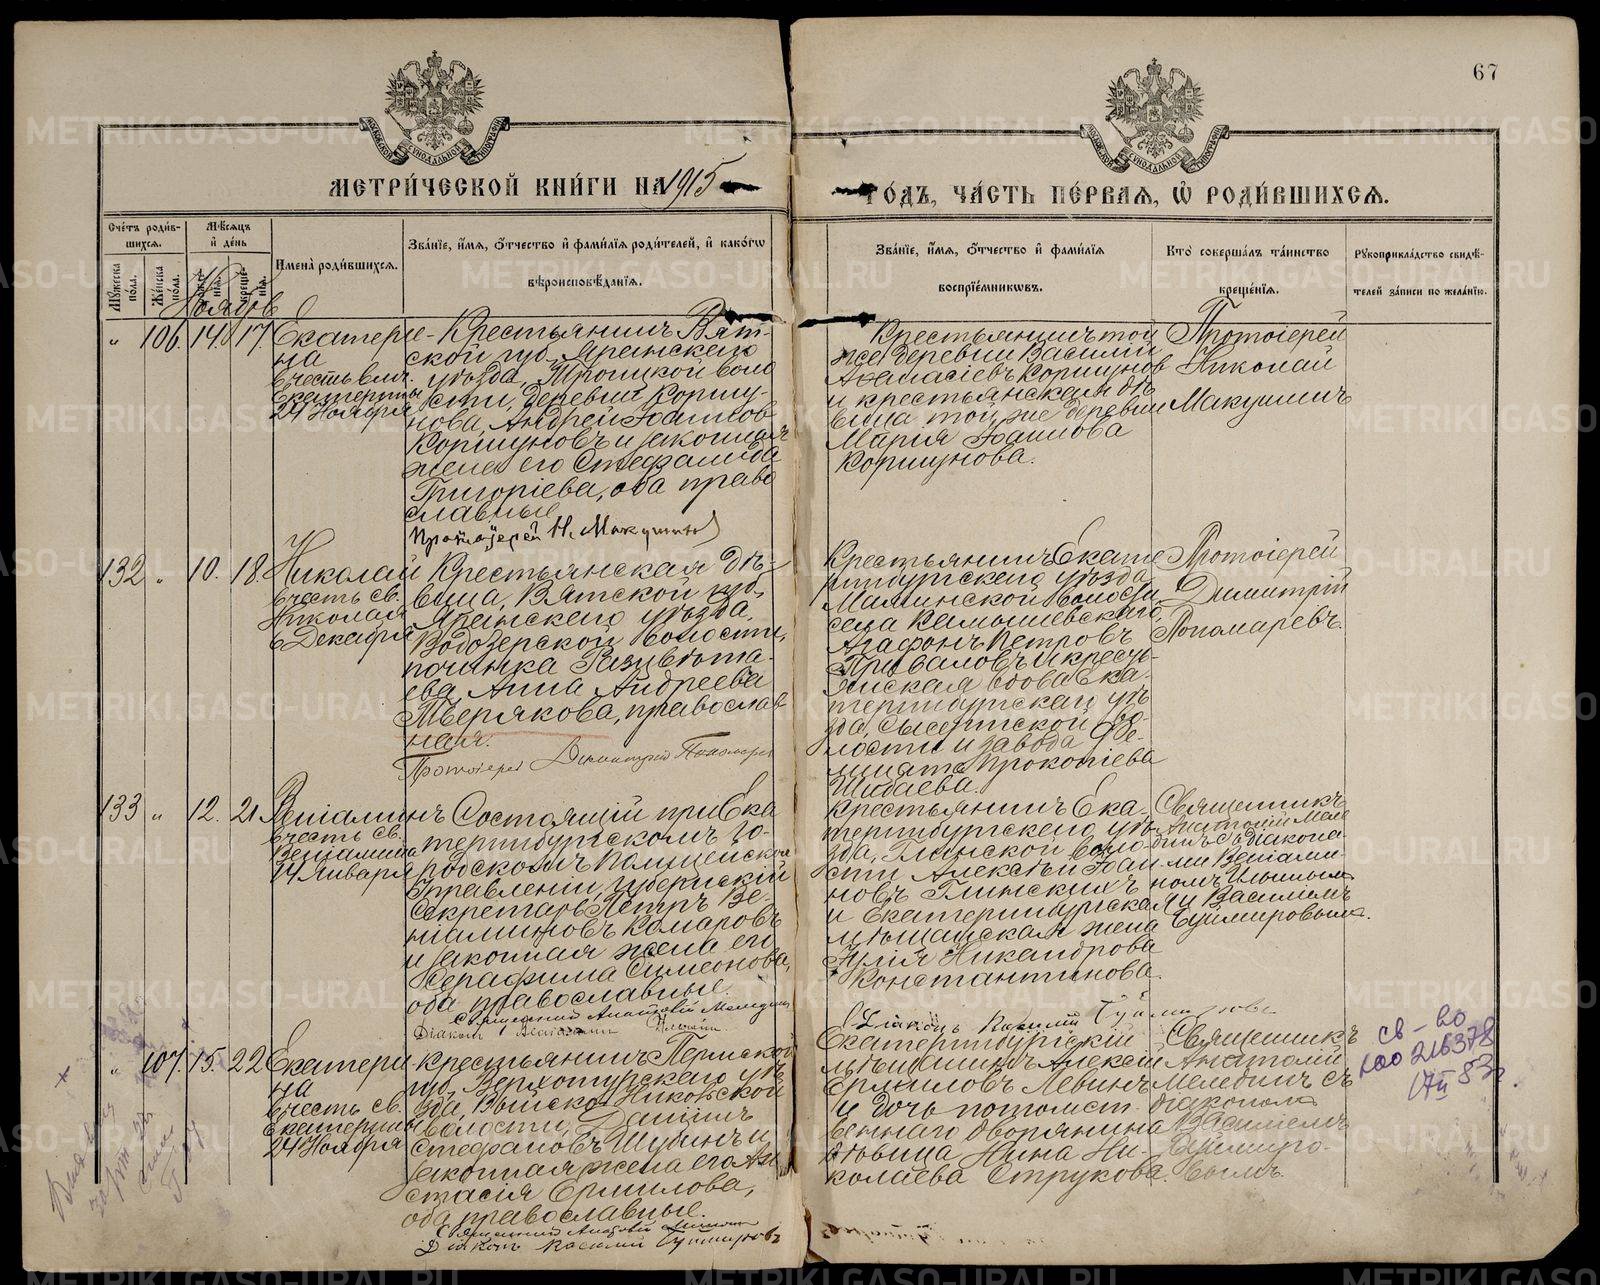 67
МЕТРИ́ЧЕСКОЙ КНИ́ГИ НА 1915
ГО́ДЪ, ЧА́СТЬ ПЕ́РВАЯ, Ѿ РОДИ́ВШИХСЯ.
Сче́тъ роди́в-
шихся.
Му́жеска по́ла.
Же́нска по́ла.
Мѣ́сяцъ
и҆ де́нь
Ноябрь
Имена̀ роди́вшихся.
Зва́нїе, и҆́мя, ѻ҆́тчество и҆ фами́лїя роди́телей, и҆ како́гѡ
вѣроисповѣ́данїя.
Зва́нїе, и҆́мя, ѻ҆́тчество и҆ фами́лїя
воспрїе́мниковъ.
Кто̀ соверша́лъ та́инство
креще́нїя.
Рꙋкоприкла́дство свидѣ́-
телей за́писи по жела́нїю.
" 106. 14. 17.
Екатери-
на
въ честь влмч.
Екатерины
24 Ноября
Крестьянинъ Вят-
ской губ., Яранскаго
уѣзда, Троицкой воло
сти, деревни Коршу-
нова, Андрей Іоанновъ
Коршуновъ и законная
жена его Стефанида
Григоріева, оба право
славные
Протоіерей Н. Макушинъ
Крестьянинъ той
же деревни Василій
Аѳанасіевъ Коршунов
и крестьянская дѣ
вица той же деревни
Марія Іоаннова
Коршунова.
Протоіерей
Николай
Макушинъ
132 " 10. 18.
Николай
въ честь св.
Николая
6 Декабря
Крестьянская дѣ-
вица, Вятской губ.,
Яранскаго уѣзда,
Водозерской волости,
починка
Анна Андреева
Тверякова, православ
ная.
Протоіерей Димитрій Пономарев
Крестьянинъ Екате
ринбургскаго уѣзда
Маминской волости
села Камышевскаго,
Агафонъ Петровъ
Приваловъ и кресть-
янская вдова Ека-
теринбургскаго уѣ
зда, Сысертской во-
лости и завода Ѳе-
Прокопіева
Шибаева.
Протоіерей
Димитрій
Пономаревъ.
133 " 12. 21
Веніаминъ
въ честь св.
Веніамина
14 Января
Состоящій при Ека
теринбургскомъ го-
родскомъ Полицейском
Управленіи, губернскій
секретарь, Петръ Ве-
ніаминовъ Комаровъ
и законная жена его
Серафима Симеонова,
оба православные.
Священникъ Анатолій Меледин
Діакон Веніамин Ильинъ
Діаконъ Василій
Крестьянинъ Ека-
теринбургскаго уѣ-
зда, Глинской воло-
сти Алексѣй Іоан-
новъ Глинскихъ
и Екатеринбургская
мѣщанская жена
Юлія Никандрова
Константинова.
Священникъ
Анатолій Меле
динъ съ діакона-
ми Веніами-
номъ Ильиным
и Василіемъ
" 107. 15. 22
Екатери
на
въ честь св.
Екатерины
24 Ноября
Крестьянинъ Пермской
губ., Верхотурскаго уѣ
зда, Выйско-Никольской
волости, Даніилъ
Стефановъ Шубинъ и
законная жена его Ана
стасія Ермилова,
оба православные.
Священникъ Анатолій
Діаконъ Василій
Екатеринбургскій
мѣщанинъ Алексѣй
Ермиловъ Левинъ
и дочь потомст-
веннаго дворянина
дѣвица Нина Ни-
колаева Струкова.
Священникъ
Анатолій
Меледин съ
діакономъ
Василіемъ
св-во
216378